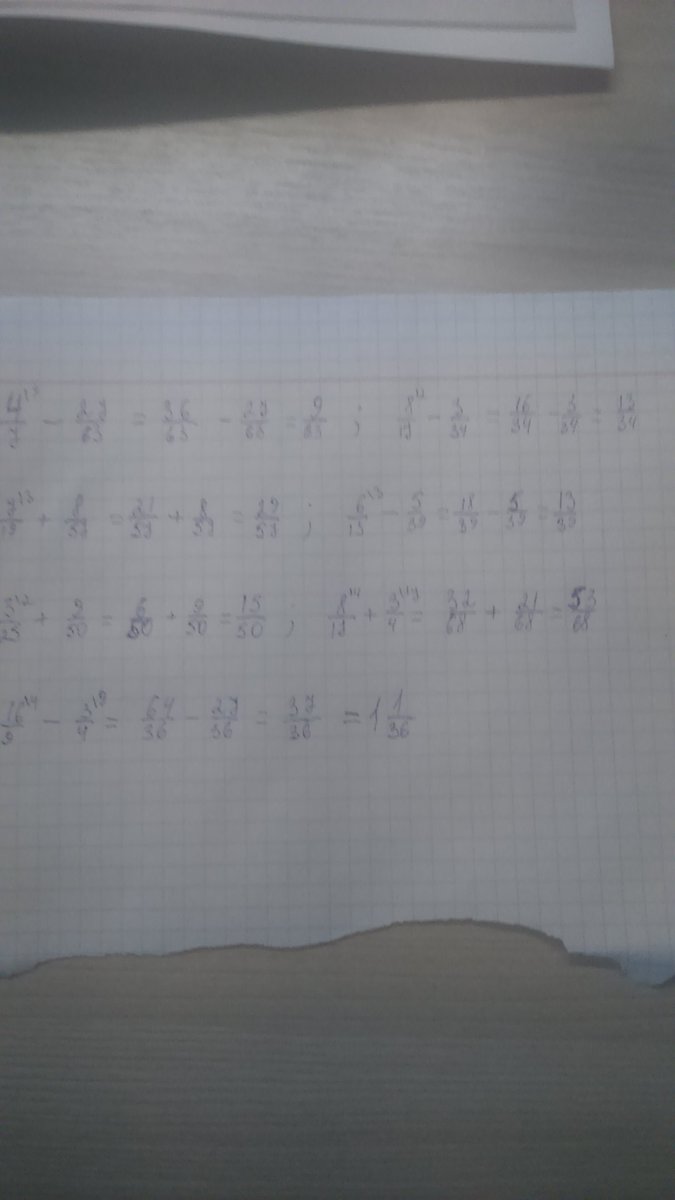 4/7 − 27/63 = 36/63 − 27/63 = 9/63 ; 8/17 − 3/34 = 16/34 − 3/34 = 13/34
+ 8/33 = 21/33 + 8/33 = 29/33 ; 6/13 − 5/39 = 18/39 − 5/39 = 13/39
+ 9/50 = 6/50 + 9/50 = 15/50 ; 8/17 + 3/4 = 32/68 + 21/68 = 53/68
16/9 − 3/4 = 64/36 − 27/36 = 37/36 = 1 1/36